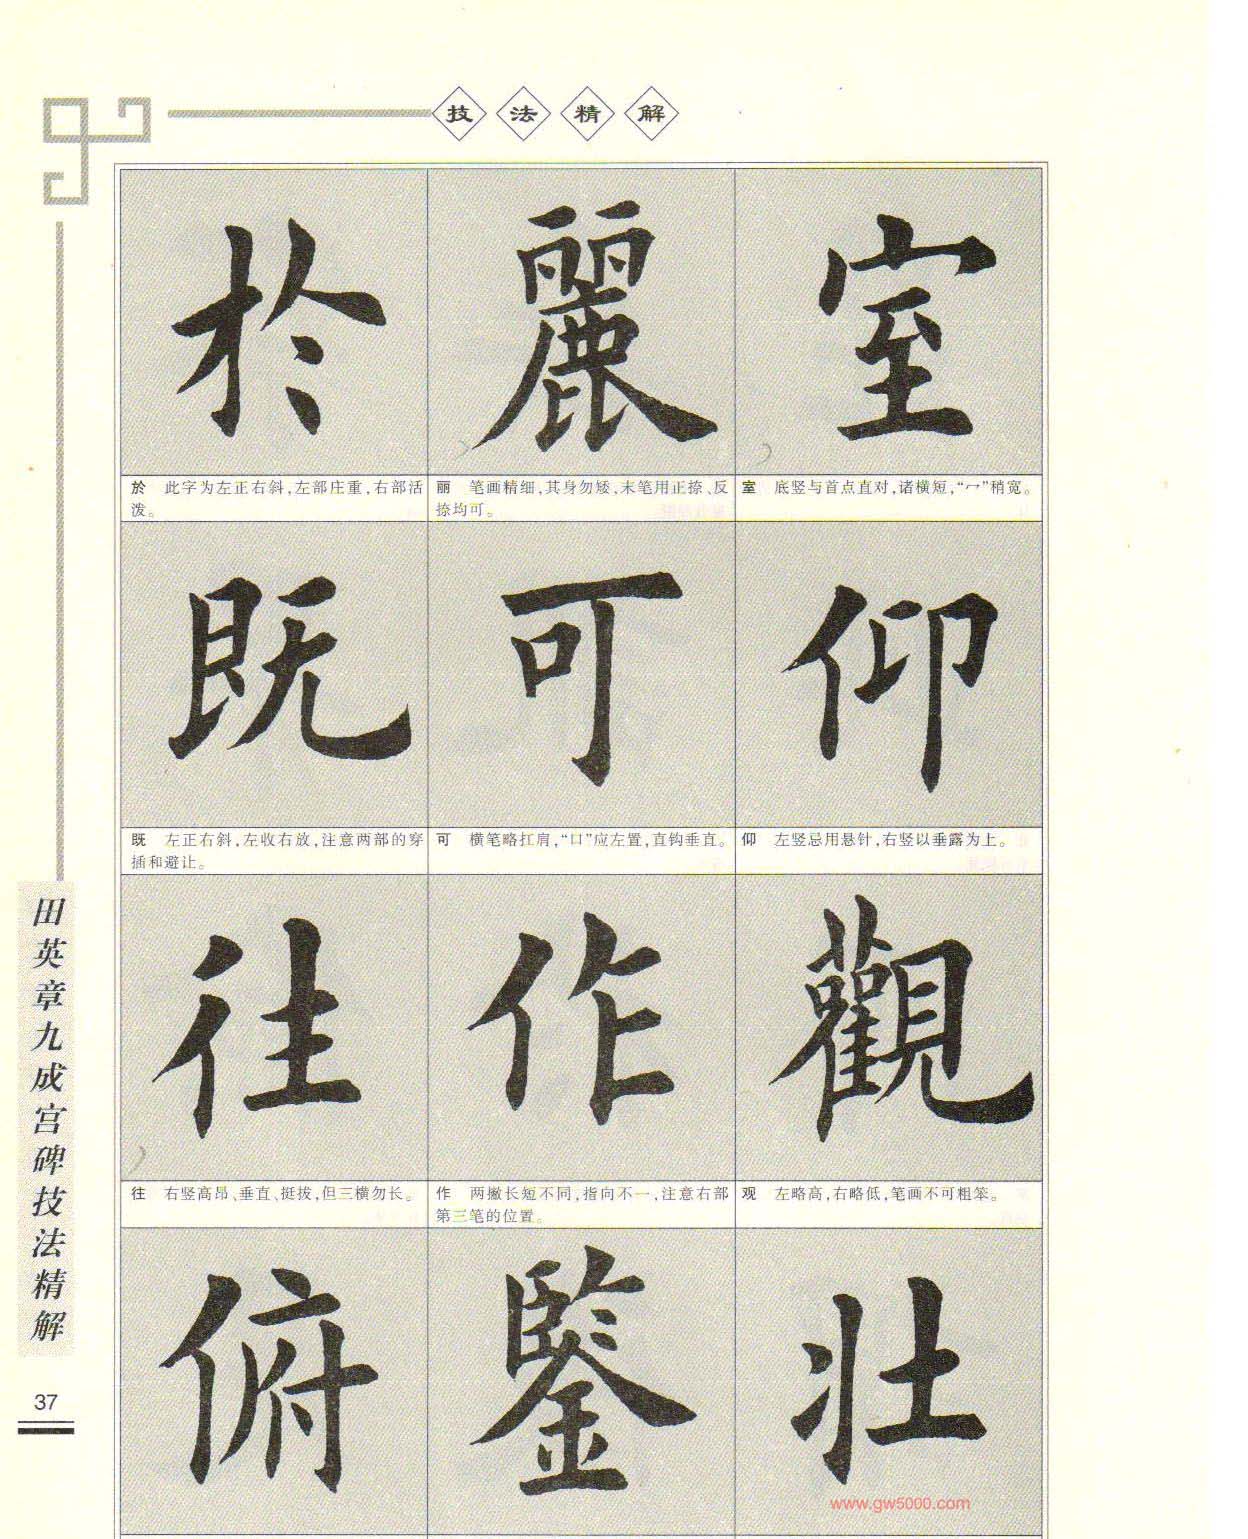 技法精解
於 麗 室
於 此字为左正右斜,左部庄重,右部活
泼。
丽 笔画精细,其身勿矮,末笔用正捺、反
捺均可。
室 底竖与首点直对,诸横短,“冖”稍宽。
既 可 仰
既 左正右斜,左收右放,注意两部的穿
插和避让。
可 横笔略扛肩,“口”应左置,直钩垂直。
仰 左竖忌用悬针,右竖以垂露为上。
往 作 觀
往 右竖高昂、垂直、挺拔,但三横勿长。
作 两撇长短不同,指向不一,注意右部
第三笔的位置。
观 左略高,右略低,笔画不可粗笨。
俯 鋻 壮
田英章九成宫碑技法精解
37
www.gw5000.com